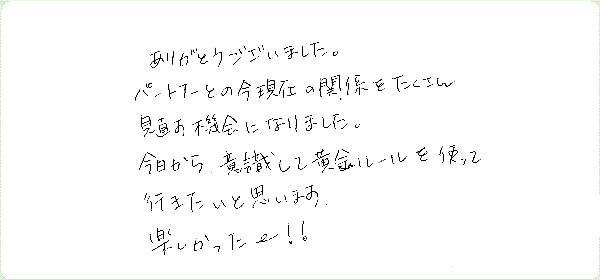 ありがとうございました。
パートナーとの今現在の関係をたくさん
見直す機会になりました。
今日から、意識して黄金ルールを使って
行きたいと思います。
楽しかったぁー!!